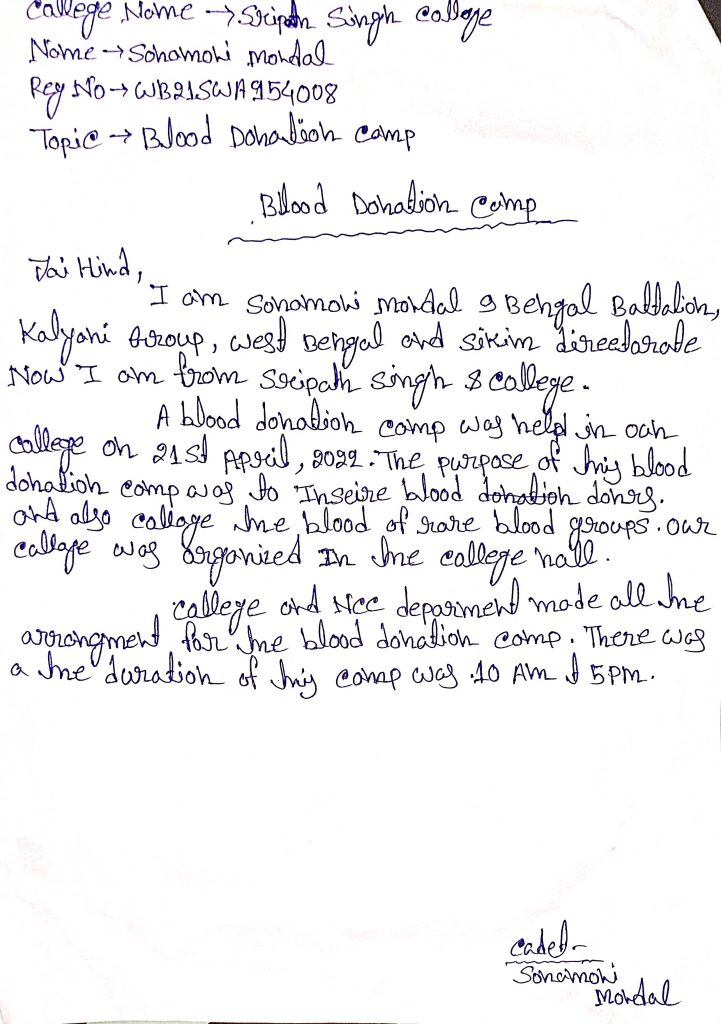 College Name → Sripath Singh College
Name → Sonamoni Mondal
Reg No → WB21SWA954008
Topic → Blood Donation Camp
Blood Donation Camp
Jai Hind,
I am Sonamoni Mondal 9 Bengal Battalion,
Kalyani Group, West Bengal and Sikim direetorate
Now I am from Sripath Singh & College.
A blood donation camp was help in our
college on 21st April, 2022. The purpose of this blood
donation camp was to Inseire blood donation donrs.
and also collage the blood of rare blood groups. our
callage was organized In the college hall.
College and Ncc deparment made all the
arrongment for the blood donation camp. There was
a the duration of this camp was .10 AM t 5PM.
Cadet-
Sonamoni
Mondal